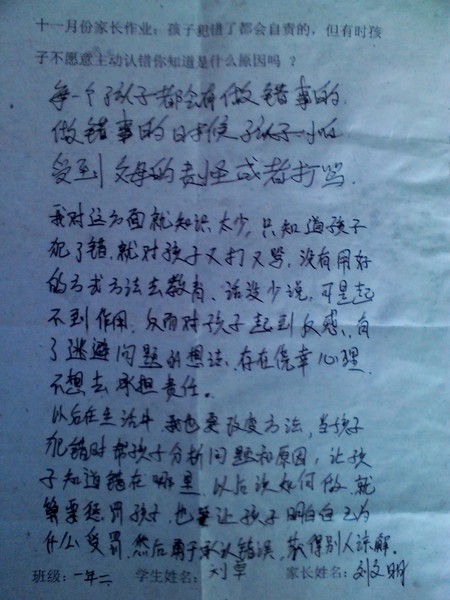 十一月份家长作业：孩子犯错了都会自责的，但有时孩
子不愿意主动认错你知道是什么原因吗？
每一个孩子都会有做错事的
做错事的时候孩子怕
受到父母的责怪或者打骂.
我对这方面就知识太少，只知道孩子
犯了错.就对孩子又打又骂，没有用好
的方式方法去教育、话没少说，可是起
不到作用.反而对孩子起到反感，有
了逃避问题的想法、存在侥幸心理.
不想去承担责任。
以后在生活中我也要改变方法，当孩子
犯错时帮孩子分析问题和原因，让孩
子知道错在哪里.以后该如何做.就
算要惩罚孩子，也要让孩子明白因为
什么受罚.然后勇于承认错误，获得别人谅解。
班级：一年二 学生姓名：刘卓 家长姓名：刘文明